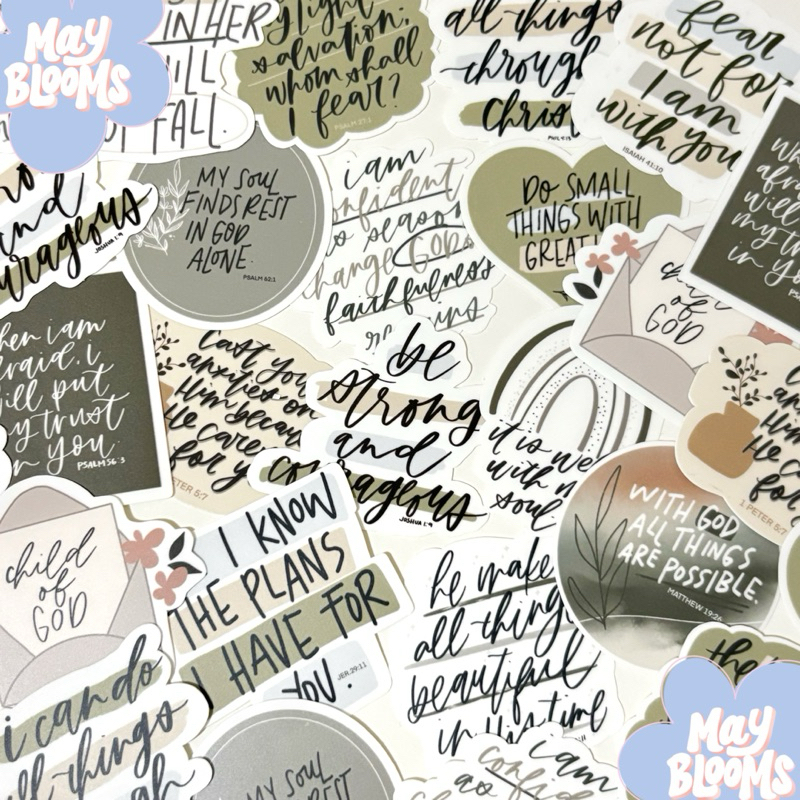 May
BLOOMS
IN HER
FALL.
my light
salvation.
whom shall
I fear?
PSALM 27:1
all things
through
Christ
PHIL 4:13
fear
not for
I am
with you
ISAIAH 41:10
and
courageous
JOSHUA 1:9
MY SOUL
FINDS REST
IN GOD
ALONE.
PSALM 62:1
i am
confident
season
change GOD's
faithfulness
DO SMALL
THINGS WITH
GREAT
child
of
GOD
my
in you
when i am
afraid, i
will put
my trust
in you.
PSALM 56:3
Cast your
anxieties on
Him because
He cares
for y
PETER 5:7
be
strong
and
courageous
JOSHUA 1:9
it is we
with m
soul
He
for
1 PETER 5:7
WITH GOD
ALL THINGS
ARE POSSIBLE.
MATTHEW 19:26
child
of
GOD
I KNOW
THE PLANS
I HAVE FOR
YOU.
JER. 29:11
he make
all things
beautiful
in His time
the
i can do
all things
MY SOUL
REST
i am
confid
May
BLOOMS